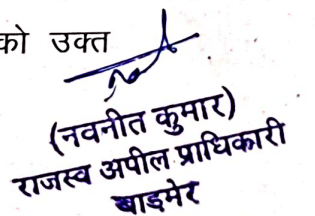 को उक्त
(नवनीत कुमार)
राजस्व अपील प्राधिकारी
बाड़मेर